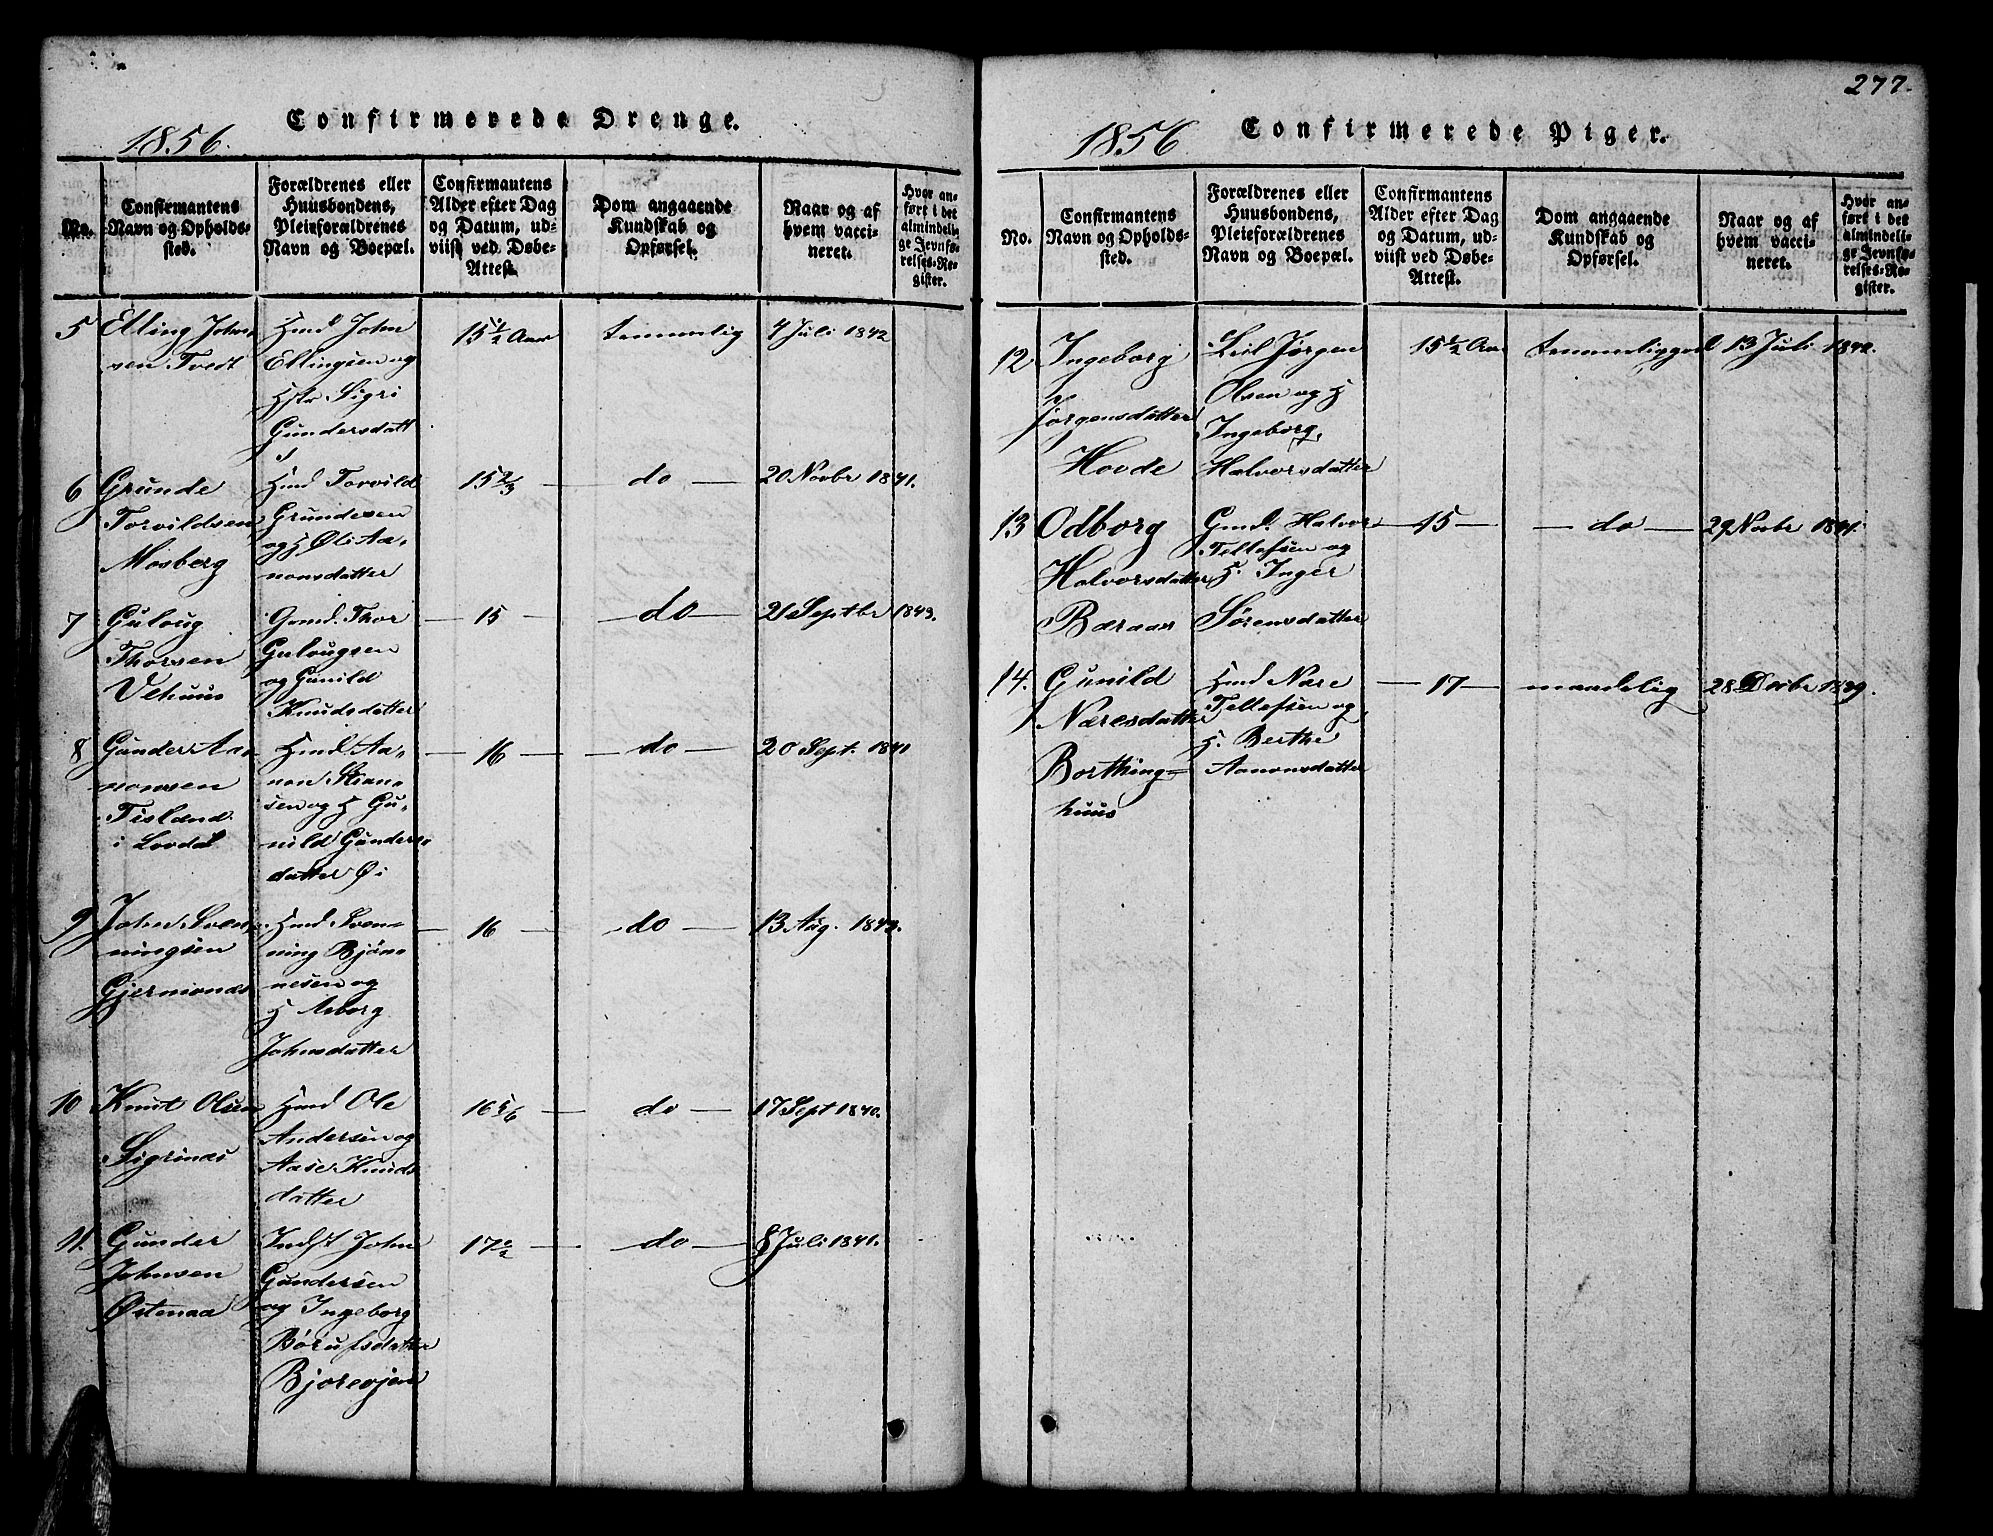 Confirmerede Drenge.
1856.
No.
Confirmantens
Navn og Opholds-
sted.
Forældrenes eller
Huusbondens,
Pleieforældrenes
Navn og Boepæl.
Confirmantens
Alder efter Dag
og Datum, ud-
viist ved Døbe-
Attest.
Dom angaaende
Kundskab og
Opførsel.
Naar og af
hvem vacci-
neret.
Hvor an-
ført i det
almindeli-
ge Jevnfø-
relses-Re-
gister.
5 Elling John-
sen Tvedt
Hmd John
Ellingsen og
Hstr Sigri
Gundersdatt
15½ Aar
temmelig
4 Juli 1842
6 Grunde
Torvildsen
Mosberg
Hmd Torvild
Grundesen
og H Øli Aa-
nonsdatter
15⅔
do
20 Novbr 1841.
7 Guloug
Thorsen
Vehuus
Gmd. Thor
Gulougsen
og Gunild
Knudsdatter
15
do
21 Septbr 1843.
8 Gunder Aa-
nonsen
Tisland
i Lovdal
Hmd Aa-
non Stian-
sen og H Gu-
nild Gunders-
datter Øi
16
do
20 Sept. 1841
9 John Sven-
ningsen
Gjermonæs
Hmd Sven-
ning Bjøn-
nesen og
H Asborg
Johnsdatter
16
do
13 Aug. 1843.
10 Knut Olsen
Sigrinæs
Hmd Ole
Andersen og
Aase Knuds
datter
16 5/6
do
17 Sept 1840.
11. Gunder
Johnsen
Østenaa
Indst John
Gundersen
og Ingeborg
Børufsdatter
Bjorevjen
17½
do
8 Juli 1841.
277.
Confirmerede Piger.
1856
No.
Confirmantens
Navn og Opholds-
sted.
Forældrenes eller
Huusbondens,
Pleieforældrenes
Navn og Boepæl.
Confirmantens
Alder efter Dag
og Datum, ud-
viist ved Døbe-
Attest.
Dom angaaende
Kundskab og
Opførsel.
Naar og af
hvem vacci-
neret.
Hvor an-
ført i det
almindeli-
ge Jevnfø-
relses-Re-
gister.
12 Ingeborg
Jørgensdatter
Hovde
Leil Jørgen
Olsen og H
Ingeborg
Halvorsdatter
15½ Aar
temmeligod
13 Juli 1842.
13 Odborg
Halvorsdatter
Bæraas
Gmd. Halvor
Tellefsen og
H. Inger
Sørensdatter
15
do
29 Novbr 1841.
14. Gunild
Næresdatter
Borthing-
huus
Hmd Nære
Tellefsen og
H. Berthe
Aanonsdatter
17
maadelig
28 Decbr 1839.